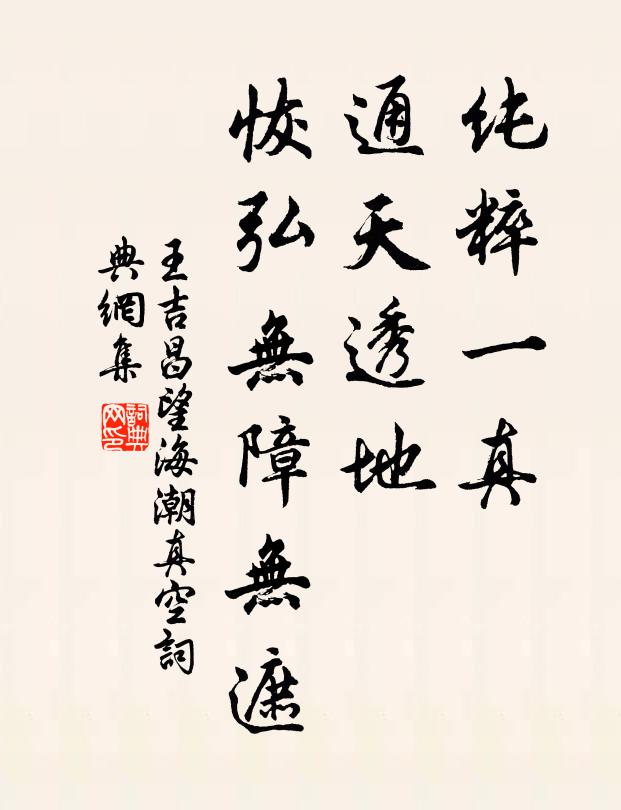 纯粹一真
通天透地
恢弘無障無遮
王吉昌望海潮真空詞
典網集
詞典
网印